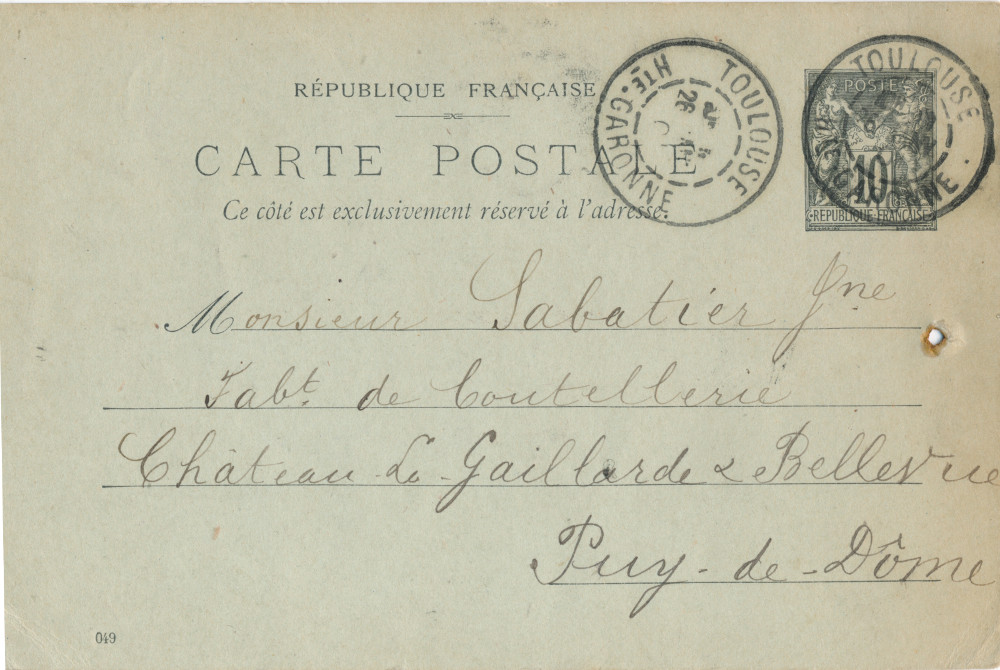 RÉPUBLIQUE FRANÇAISE
CARTE POSTALE
Ce côté est exclusivement réservé à l'adresse.
TOULOUSE
HTE-GARONNE
26
TOULOUSE
GARONNE
POSTES
10
RÉPUBLIQUE FRANÇAISE
Monsieur Sabatier Jne
Fabt. de Coutellerie
Château La Gaillarde & Bellevue
Puy-de-Dôme
049